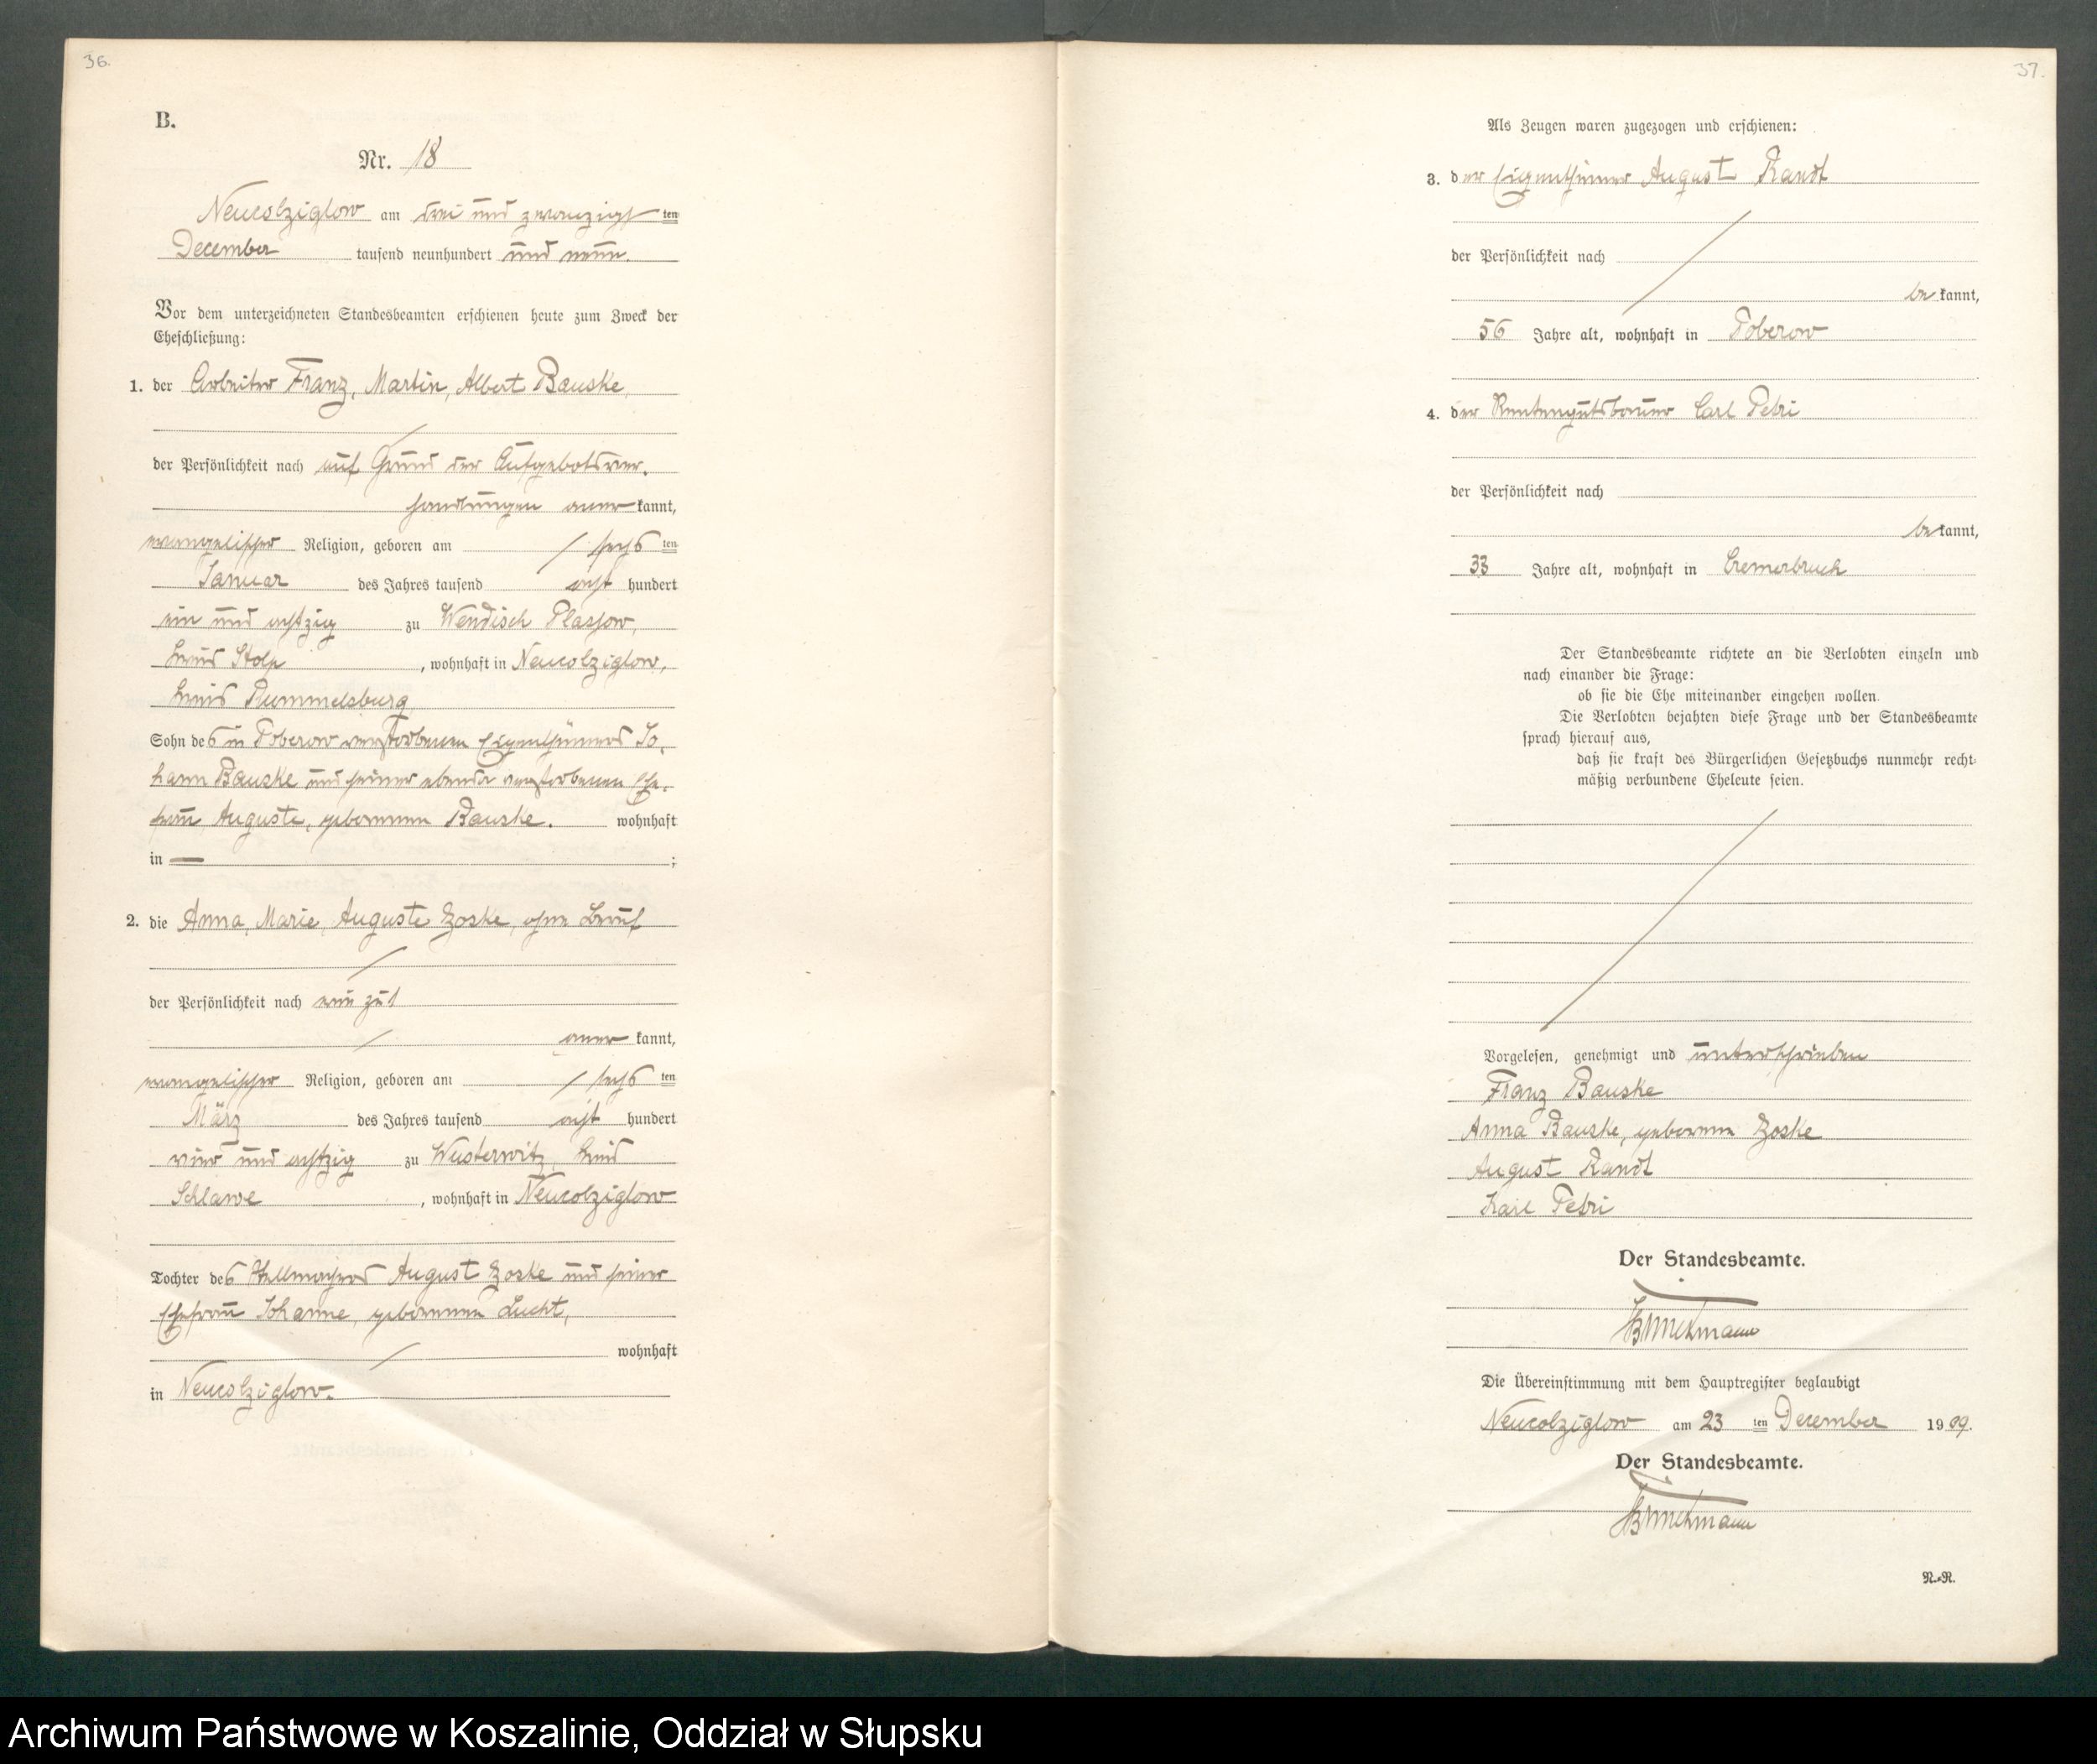 36.
B.
Nr. 18
Neucolziglow am drei und zwanzigsten
December tausend neunhundert und neun.
Vor dem unterzeichneten Standesbeamten erschienen heute zum Zweck der
Eheschließung:
1. der Arbeiter Franz, Martin, Albert Bauske,
der Persönlichkeit nach auf Grund der Aufgebotsver-
handlungen anerkannt,
evangelischer Religion, geboren am sechsten
Januar des Jahres tausend acht hundert
ein und achtzig zu Wendisch Plassow,
Kreis Stolp, wohnhaft in Neucolziglow,
Kreis Rummelsburg
Sohn des in Poberow verstorbenen Eigenthümers Jo-
hann Bauske und seiner ebenda verstorbenen Ehe-
frau Auguste, geborenen Bauske. wohnhaft
in — ;
2. die Anna, Marie, Auguste Zoske, ohne Beruf
der Persönlichkeit nach wie zu 1
anerkannt,
evangelischer Religion, geboren am sechsten
März des Jahres tausend acht hundert
vier und achtzig zu Wusterwitz, Kreis
Schlawe, wohnhaft in Neucolziglow
Tochter des Stellmachers August Zoske und seiner
Ehefrau Johanne, geborenen Lucht,
wohnhaft
in Neucolziglow.
37.
Als Zeugen waren zugezogen und erschienen:
3. der Eigenthümer August Randt
der Persönlichkeit nach
bekannt,
56 Jahre alt, wohnhaft in Poberow
4. der Rentengutsbauer Carl Petri
der Persönlichkeit nach
bekannt,
33 Jahre alt, wohnhaft in Cremerbruch
Der Standesbeamte richtete an die Verlobten einzeln und
nach einander die Frage:
ob sie die Ehe miteinander eingehen wollen.
Die Verlobten bejahten diese Frage und der Standesbeamte
sprach hierauf aus,
daß sie kraft des Bürgerlichen Gesetzbuchs nunmehr recht-
mäßig verbundene Eheleute seien.
Vorgelesen, genehmigt und unterschrieben
Franz Bauske
Anna Bauske, geborenen Zoske
August Randt
Karl Petri
Der Standesbeamte.
Die Übereinstimmung mit dem Hauptregister beglaubigt
Neucolziglow am 23 ten December 1909.
Der Standesbeamte.
N.=N.
Archiwum Państwowe w Koszalinie, Oddział w Słupsku